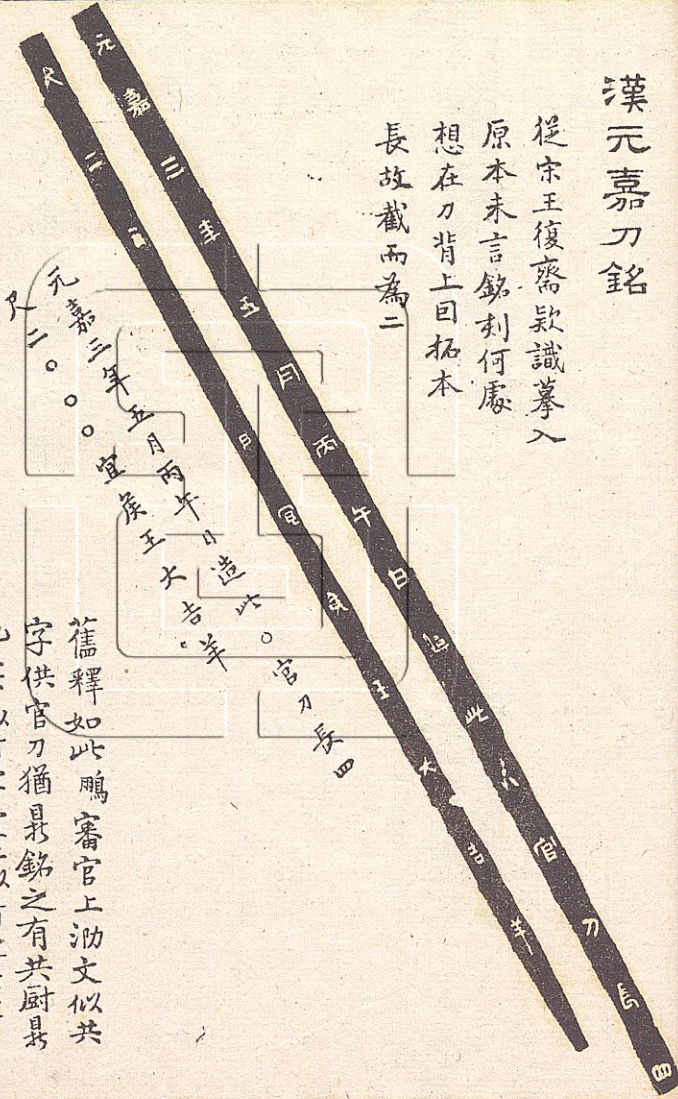 漢元嘉刀銘
從宋王復齋欵識摹入
原本未言銘刻何處
想在刀背上因拓本
長故截而為二
元嘉三年五月丙午日造此 官刀長四
尺二 日宜矦王大吉羊
元嘉三年五月丙午日造此○官刀長四
尺二○○○宜矦王大吉羊
舊釋如此鵬審官上泐文似共
字供官刀猶鼎銘之有共厨鼎